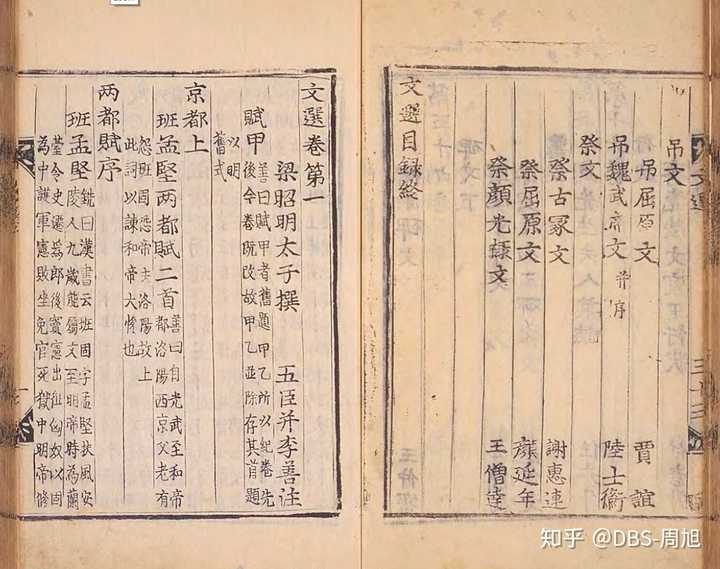 文選
吊文
吊屈原文 賈誼
吊魏武帝文 并序 陸士衡
祭文
祭古冢文 謝惠連
祭屈原文 顏延年
祭顏光祿文 王僧達
文選目録終
文選卷第一
梁昭明太子撰 五臣并李善注
賦甲 善曰賦甲者舊題甲乙所以紀卷先
後今卷既改故甲乙並除存其首題
以明
舊式
京都上
班孟堅两都賦二首 善曰自光武至和帝
都洛陽西京父老有
怨班固恐帝去洛陽故上
此詞以諫和帝大悅也
两都賦序
班孟堅 銑曰漢書云班固字孟堅扶風安
陵人九歲能屬文至明帝時為蘭
臺令史遷為郎後竇憲出征匈奴以固
為中護軍憲敗坐免官死獄中明帝修
知乎 @DBS-周旭